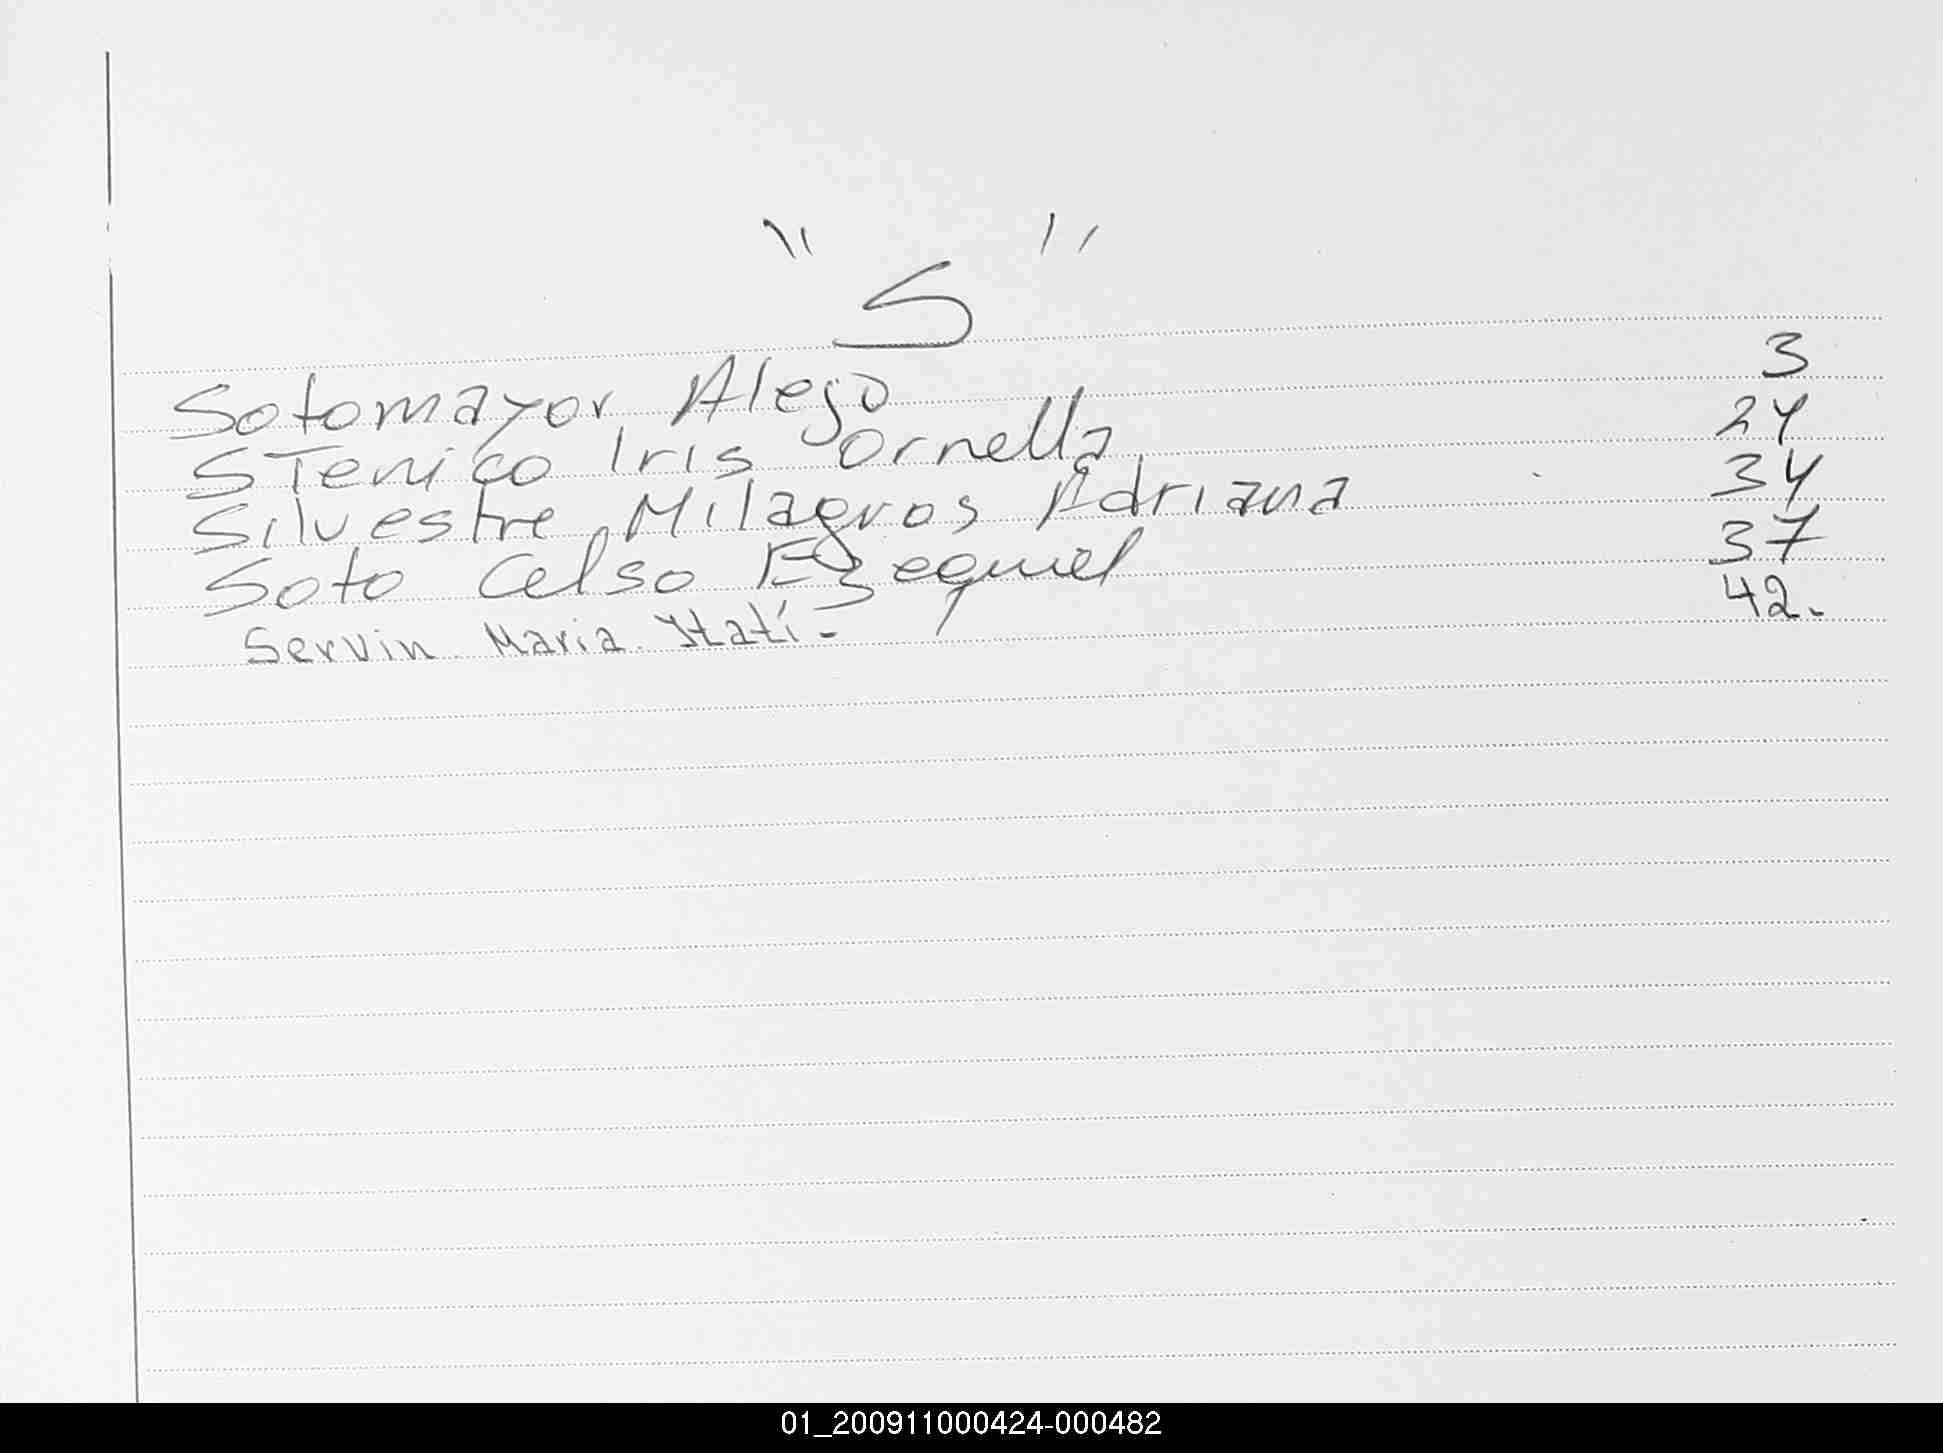 "S"
Sotomayor Alejo 3
STenico Iris Ornella 24
Silvestre Milagros Adriana 34
Soto Celso Ezequiel 37
Servin Maria Itatí - 42.
01_200911000424-000482